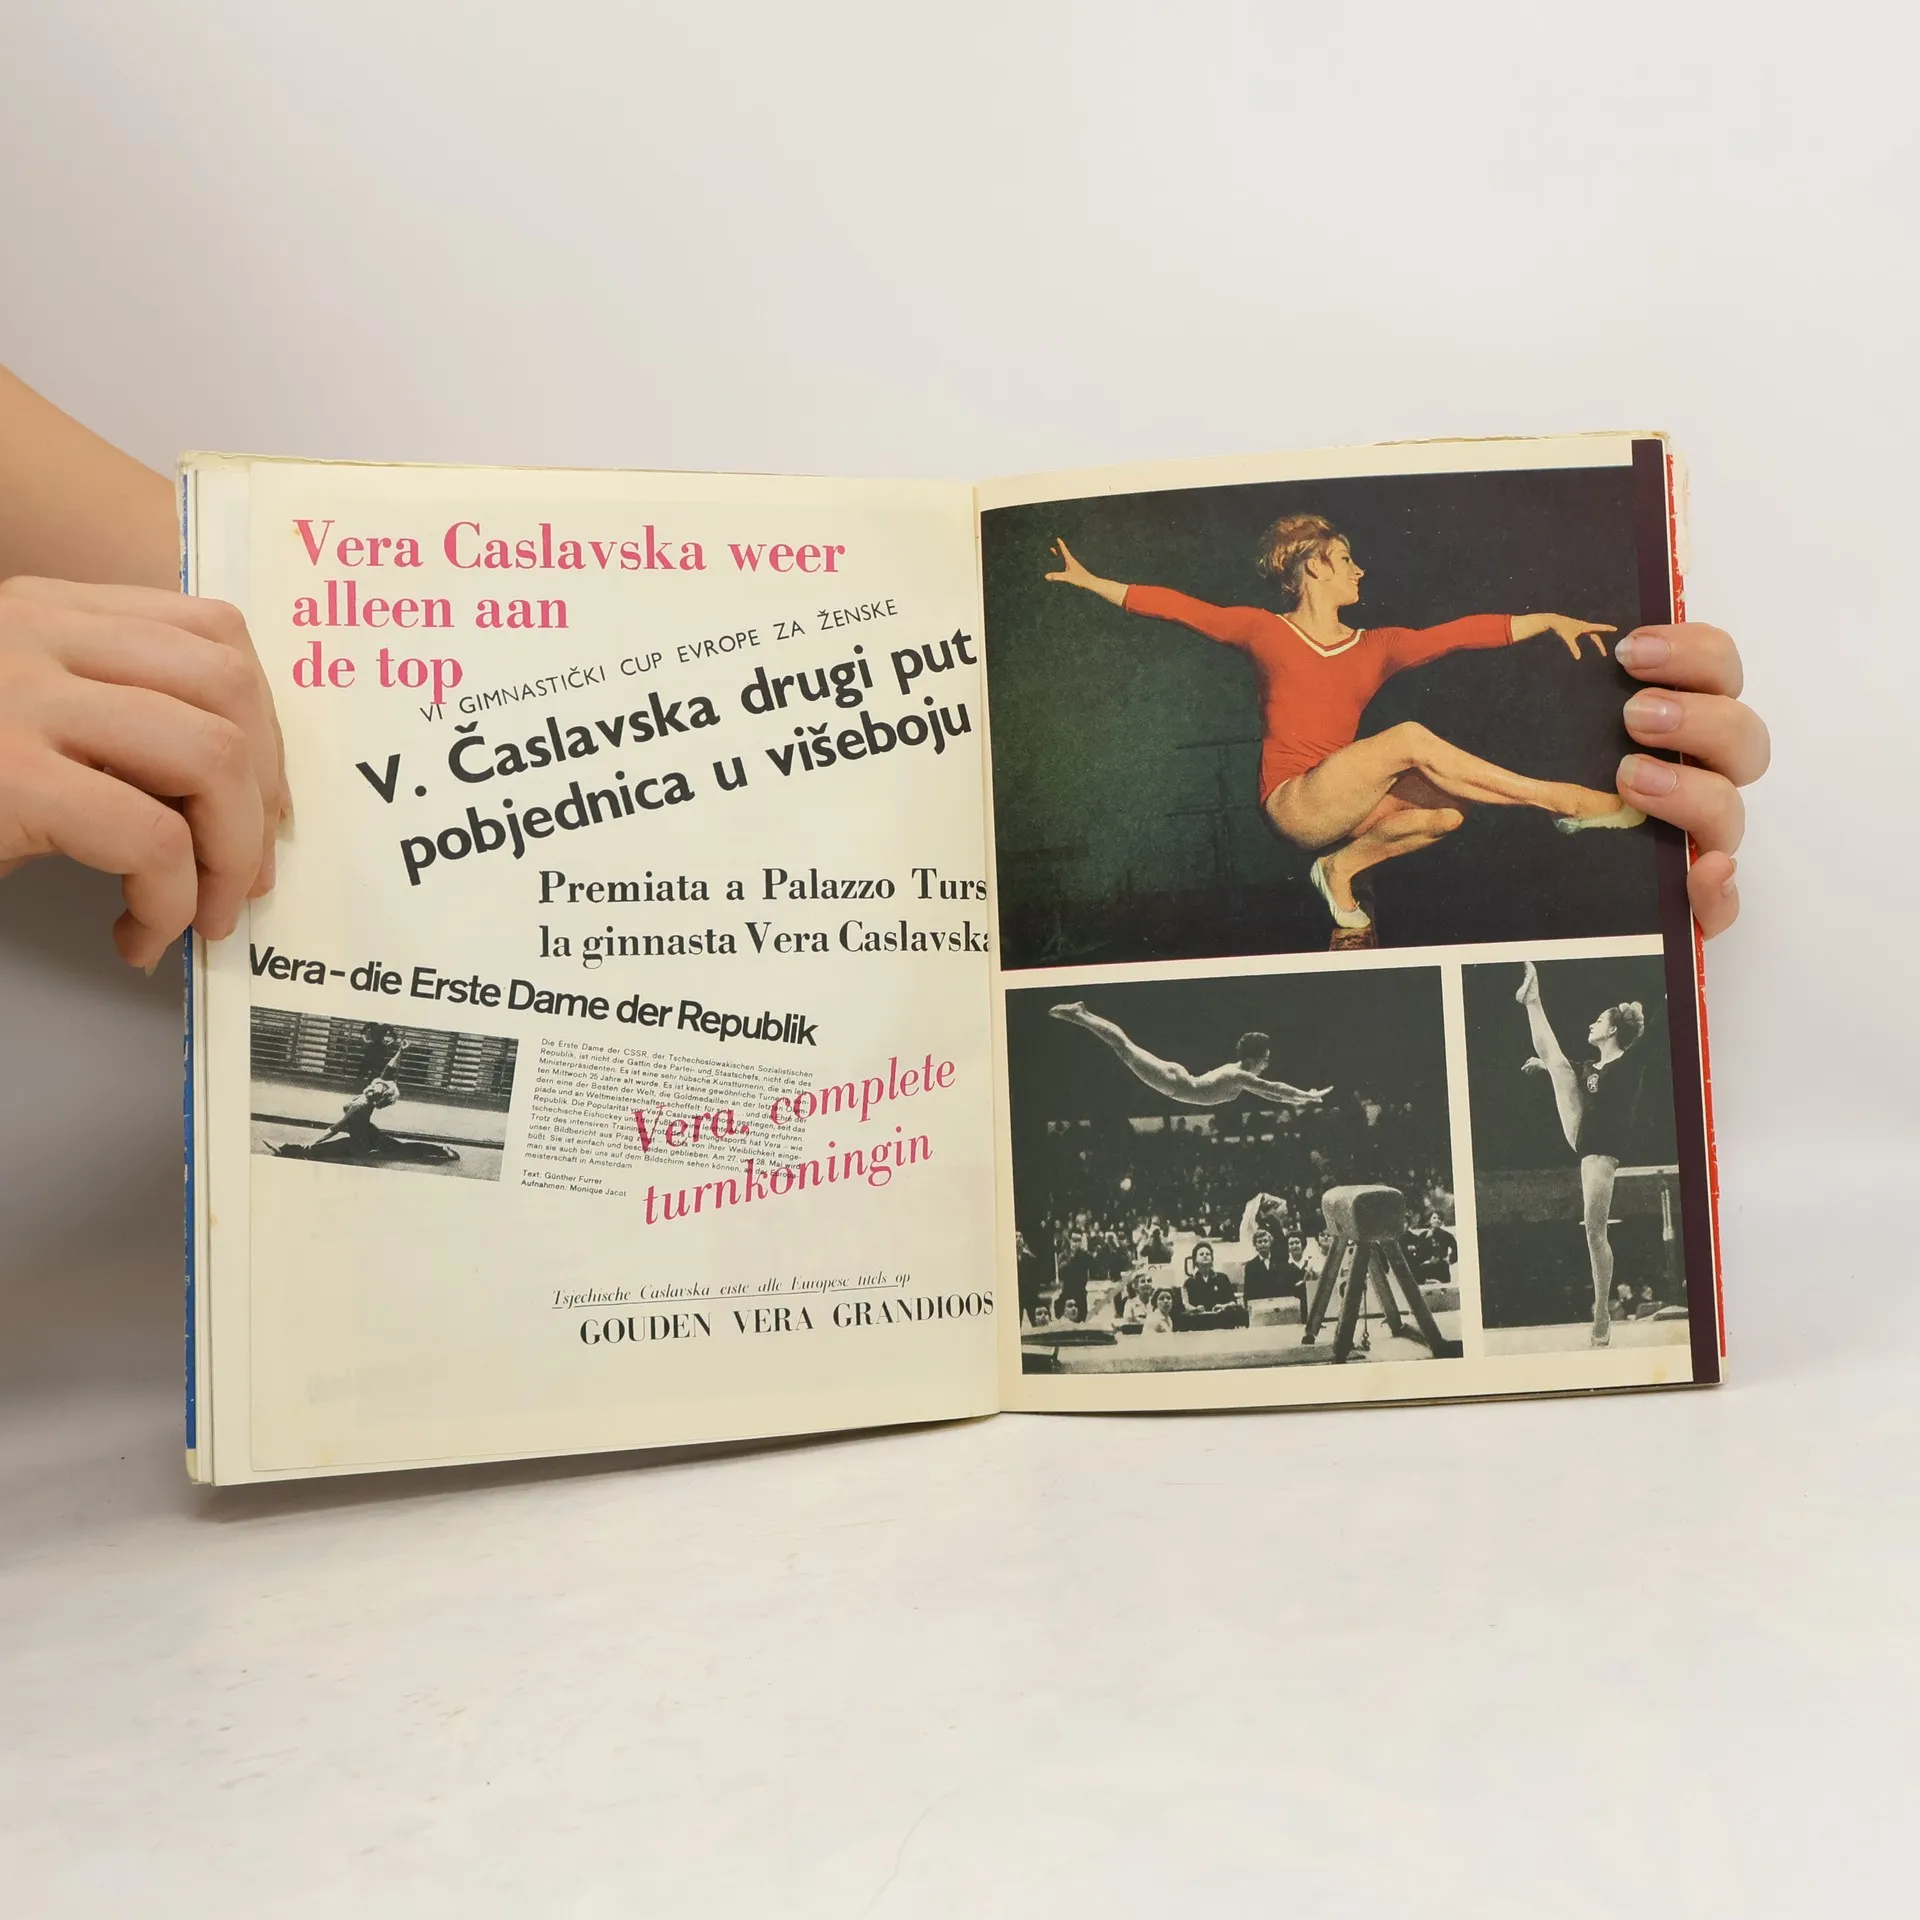 Vera Caslavska weer
alleen aan
de top
VI GIMNASTIČKI CUP EVROPE ZA ŽENSKE
V. Časlavska drugi put
pobjednica u višeboju
Premiata a Palazzo Turs
la ginnasta Vera Caslavska
Vera-die Erste Dame der Republik
Die Erste Dame der CSSR, der Tschechoslowakischen Sozialistischen
Republik, ist nicht die Gattin des Partei- und Staatschefs, nicht die des
Ministerpräsidenten. Es ist eine sehr hübsche Kunstturnerin, die am letz-
ten Mittwoch 25 Jahre alt wurde. Es ist keine gewöhnliche
dern eine der Besten der Welt, die Goldmedaillen an der letzten
piade und an Weltmeisterschaften scheffelt: für sich und die Ehre der
Republik. Die Popularität von Vera Caslavska gestiegen, seit das
tschechische Eishockey und der
Trotz des intensiven Trainings, trotz des Leistungssports hat Vera – wie
unser Bildbericht aus Prag – nichts von ihrer Weiblichkeit einge-
büßt. Sie ist einfach und bescheiden geblieben. Am 27. und 28. Mai wird
man sie auch bei uns auf dem Bildschirm sehen können, an der Europa-
meisterschaft in Amsterdam
Text: Günther Furrer
Aufnahmen: Monique Jacot
Vera, complete
turnkoningin
Tsjechische Caslavska eiste alle Europese titels op
GOUDEN VERA GRANDIOOS